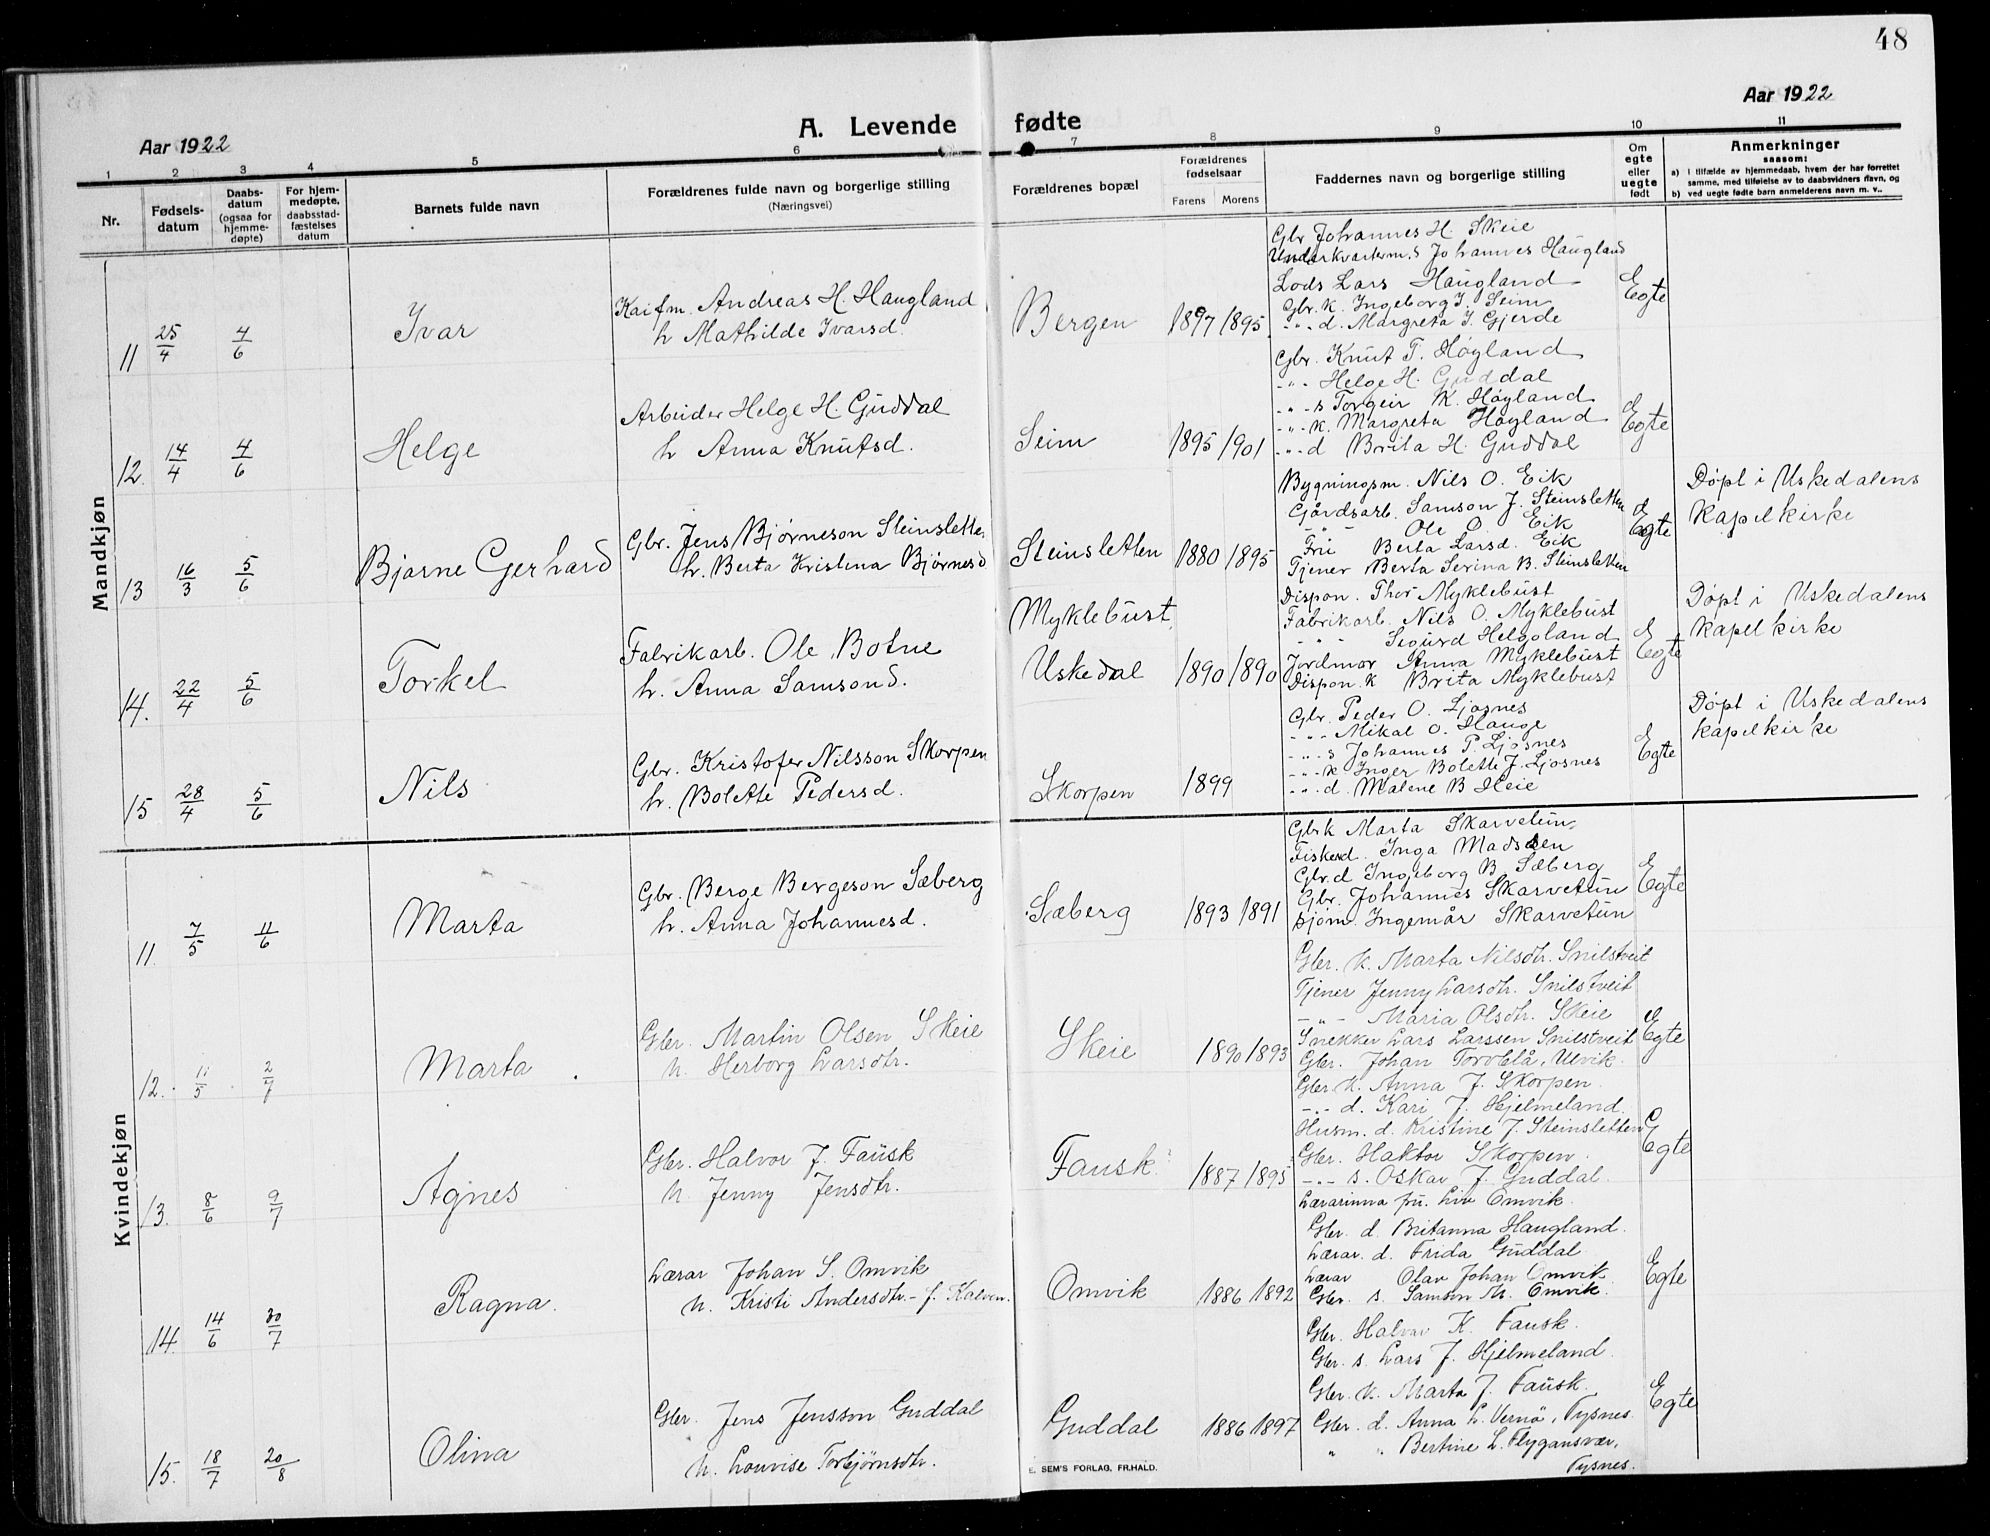 48
Aar 1922
A. Levende fødte
Aar 1922
1 2 3 4 5 6 7 8 9 10 11
Nr.
Fødsels-
datum
Daabs-
datum
(ogsaa for
hjemme-
døpte)
For hjem-
medøpte,
daabsstad-
fæstelses
datum
Barnets fulde navn
Forældrenes fulde navn og borgerlige stilling
(Næringsvei)
Forældrenes bopæl
Forældrenes
fødselsaar
Farens Morens
Faddernes navn og borgerlige stilling
Om
egte
eller
uegte
født
Anmerkninger
saasom:
a) i tilfælde av hjemmedaab, hvem der har forrettet
samme, med tilføielse av to daabsvidners navn, og
b) ved uegte fødte barn anmelderens navn m. v..
Mandkjøn
11 25/4 4/6 Ivar
Kaifm. Andreas H. Haugland
h Mathilde Ivarsd.
Bergen 1897 1895
Gbr Johannes H. Skeie
Underkvarterm.s Johannes Haugland
Lods Lars Haugland
Gbr. k. Ingeborg J. Seim
-"- d. Margreta J. Gjerde
Egte
12. 14/4 4/6 Helge
Arbeider Helge H. Guddal
h Anna Knutsd.
Seim 1895 1901
Gbr. Knut T. Høgland
-"- Helge H. Guddal
-"- s Torgeir K. Høgland
-"- k. Margreta Høgland
-"- d Brita H. Guddal
Egte
13 16/3 5/6 Bjarne Gerhard
Gbr. Jens Bjørneson Steinsletten
h. Berta Kristena Bjørnesd
Steinsletten 1880 1895
Bygningsm. Nils O. Eik
Gårdsarb. Samson J. Steinsletten
-"- Ole O. Eik
Fru Berta Larsd. Eik
Tjener Berta Serina B. Steinsletten
Egte
Døpt i Uskedalens
kapelkirke
14. 22/4 5/6 Torkel
Fabrikarb. Ole Botne
h. Anna Samsond.
Myklebust,
Uskedal 1890 1890
Dispon. Thor Myklebust
Fabrikarb. Nils O. Myklebust
-"- Sigurd Helgoland
Jordmor Anna Myklebust
Dispon. k Brita Myklebust
Egte
Døpt i Uskedalens
kapelkirke
15 28/4 5/6 Nils
Gbr. Kristofer Nilsson Skorpen
h. Bolette Pedersd.
Skorpen 1899
Gbr. Peder O. Ljosnes
-"- Mikal O. Hauge
-"- s Johannes P. Ljosnes
-"- k Inger Bolette J. Ljosnes
-"- d. Malene B Heie
Egte
Døpt i Uskedalens
kapelkirke
Kvindekjøn
11. 7/5 11/6 Marta
Gbr. Berge Bergeson Sæberg
h. Anna Johannesd.
Sæberg 1893 1891
Gbr k Marta Skarvetun,
Fiskerd. Inga Madssen
Gbr.d Ingeborg B Sæberg
Gbr. Johannes Skarvetun
Sjöm. Ingemår Skarvetun
Egte
12. 11/5 2/7 Marta
Gbr. Martin Olsen Skeie
h. Herborg Larsdtr.
Skeie 1890 1893
Gbr. k. Marta Nilsdtr. Snilstveit
Tjener Jenny Larsdtr. Snilstveit
-"- Maria Olsdtr. Skeie
Snekker Lars Larssen Snilstveit
Gbr. Johan Torblå, Ulvik.
Egte
13. 8/6 9/7 Agnes
Gbr. Halvor J. Fausk
h. Jenny Jensdtr.
Fausk. 1887 1895
Gbr. k. Anna J. Skorpen.
-"- d. Kari J. Hjelmeland.
Husm. d. Kristine J. Steinsletten
Gbr. Haktor Skorpen.
-"- s. Oskar J. Guddal.
Egte
14. 14/6 30/7 Ragna.
Lærar Johan S. Omvik
h. Kristi Andersdtr. - f. Kalven.
Omvik 1886 1892
Lærarinna fru. Liv Omvik.
Gbr. d. Britanna Haugland.
Lærar. d. Frida Guddal
Lærar Olav Johan Omvik
Gbr. s. Samson M. Omvik.
Egte
15. 18/7 20/8 Olina
Gbr. Jens Jensson Guddal
h. Lovise Torbjørnsdtr.
Guddal 1886 1897
Gbr. Halvar K. Fausk.
Gbr. s. Lars J. Hjelmeland.
Gbr. k. Marta J. Fausk.
Gbr. d. Anna L. Vernø, Tysnes.
" " Bertine L. Flygansvær,
Tysnes.
Egte
E. SEM'S FORLAG, FR.HALD.